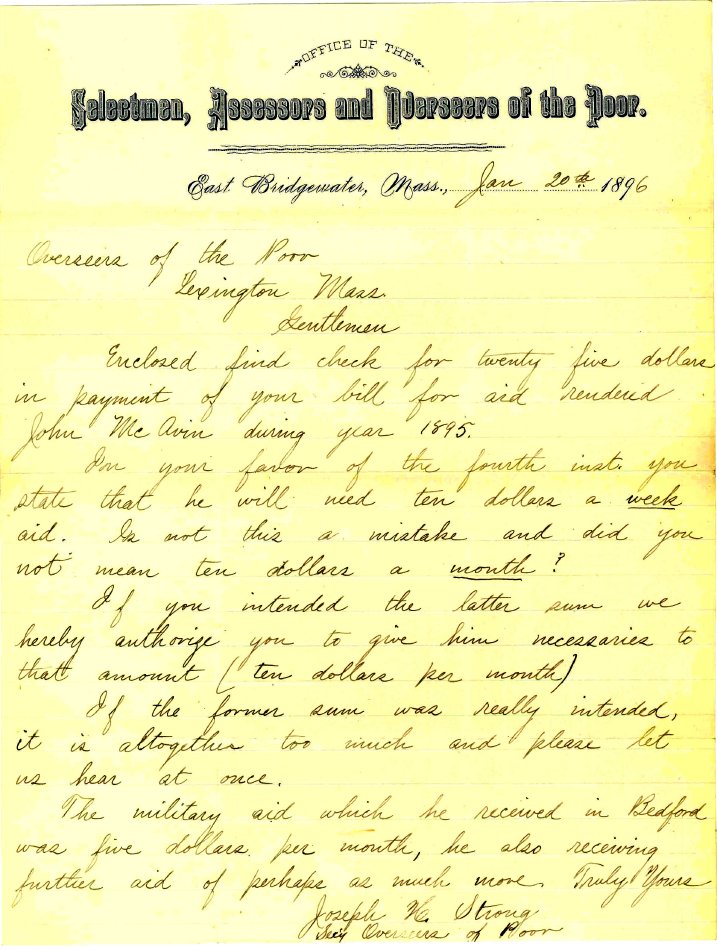 OFFICE OF THE
Selectmen, Assessors and Overseers of the Poor.
East Bridgewater, Mass., Jan 20th 1896
Overseers of the Poor
Lexington Mass.
Gentlemen
Enclosed find check for twenty five dollars
in payment of your bill for aid rendered
John McAvin during year 1895.
In your favor of the fourth inst. you
state that he will need ten dollars a week
aid. Is not this a mistake and did you
not mean ten dollars a month?
If you intended the latter sum we
hereby authorize you to give him necessaries to
that amount (ten dollars per month)
If the former sum was really intended,
it is altogether too much and please let
us hear at once.
The military aid which he received in Bedford
was five dollars per month, he also receiving
further aid of perhaps as much more. Truly Yours
Joseph H. Strong
Sec'y Overseers of Poor